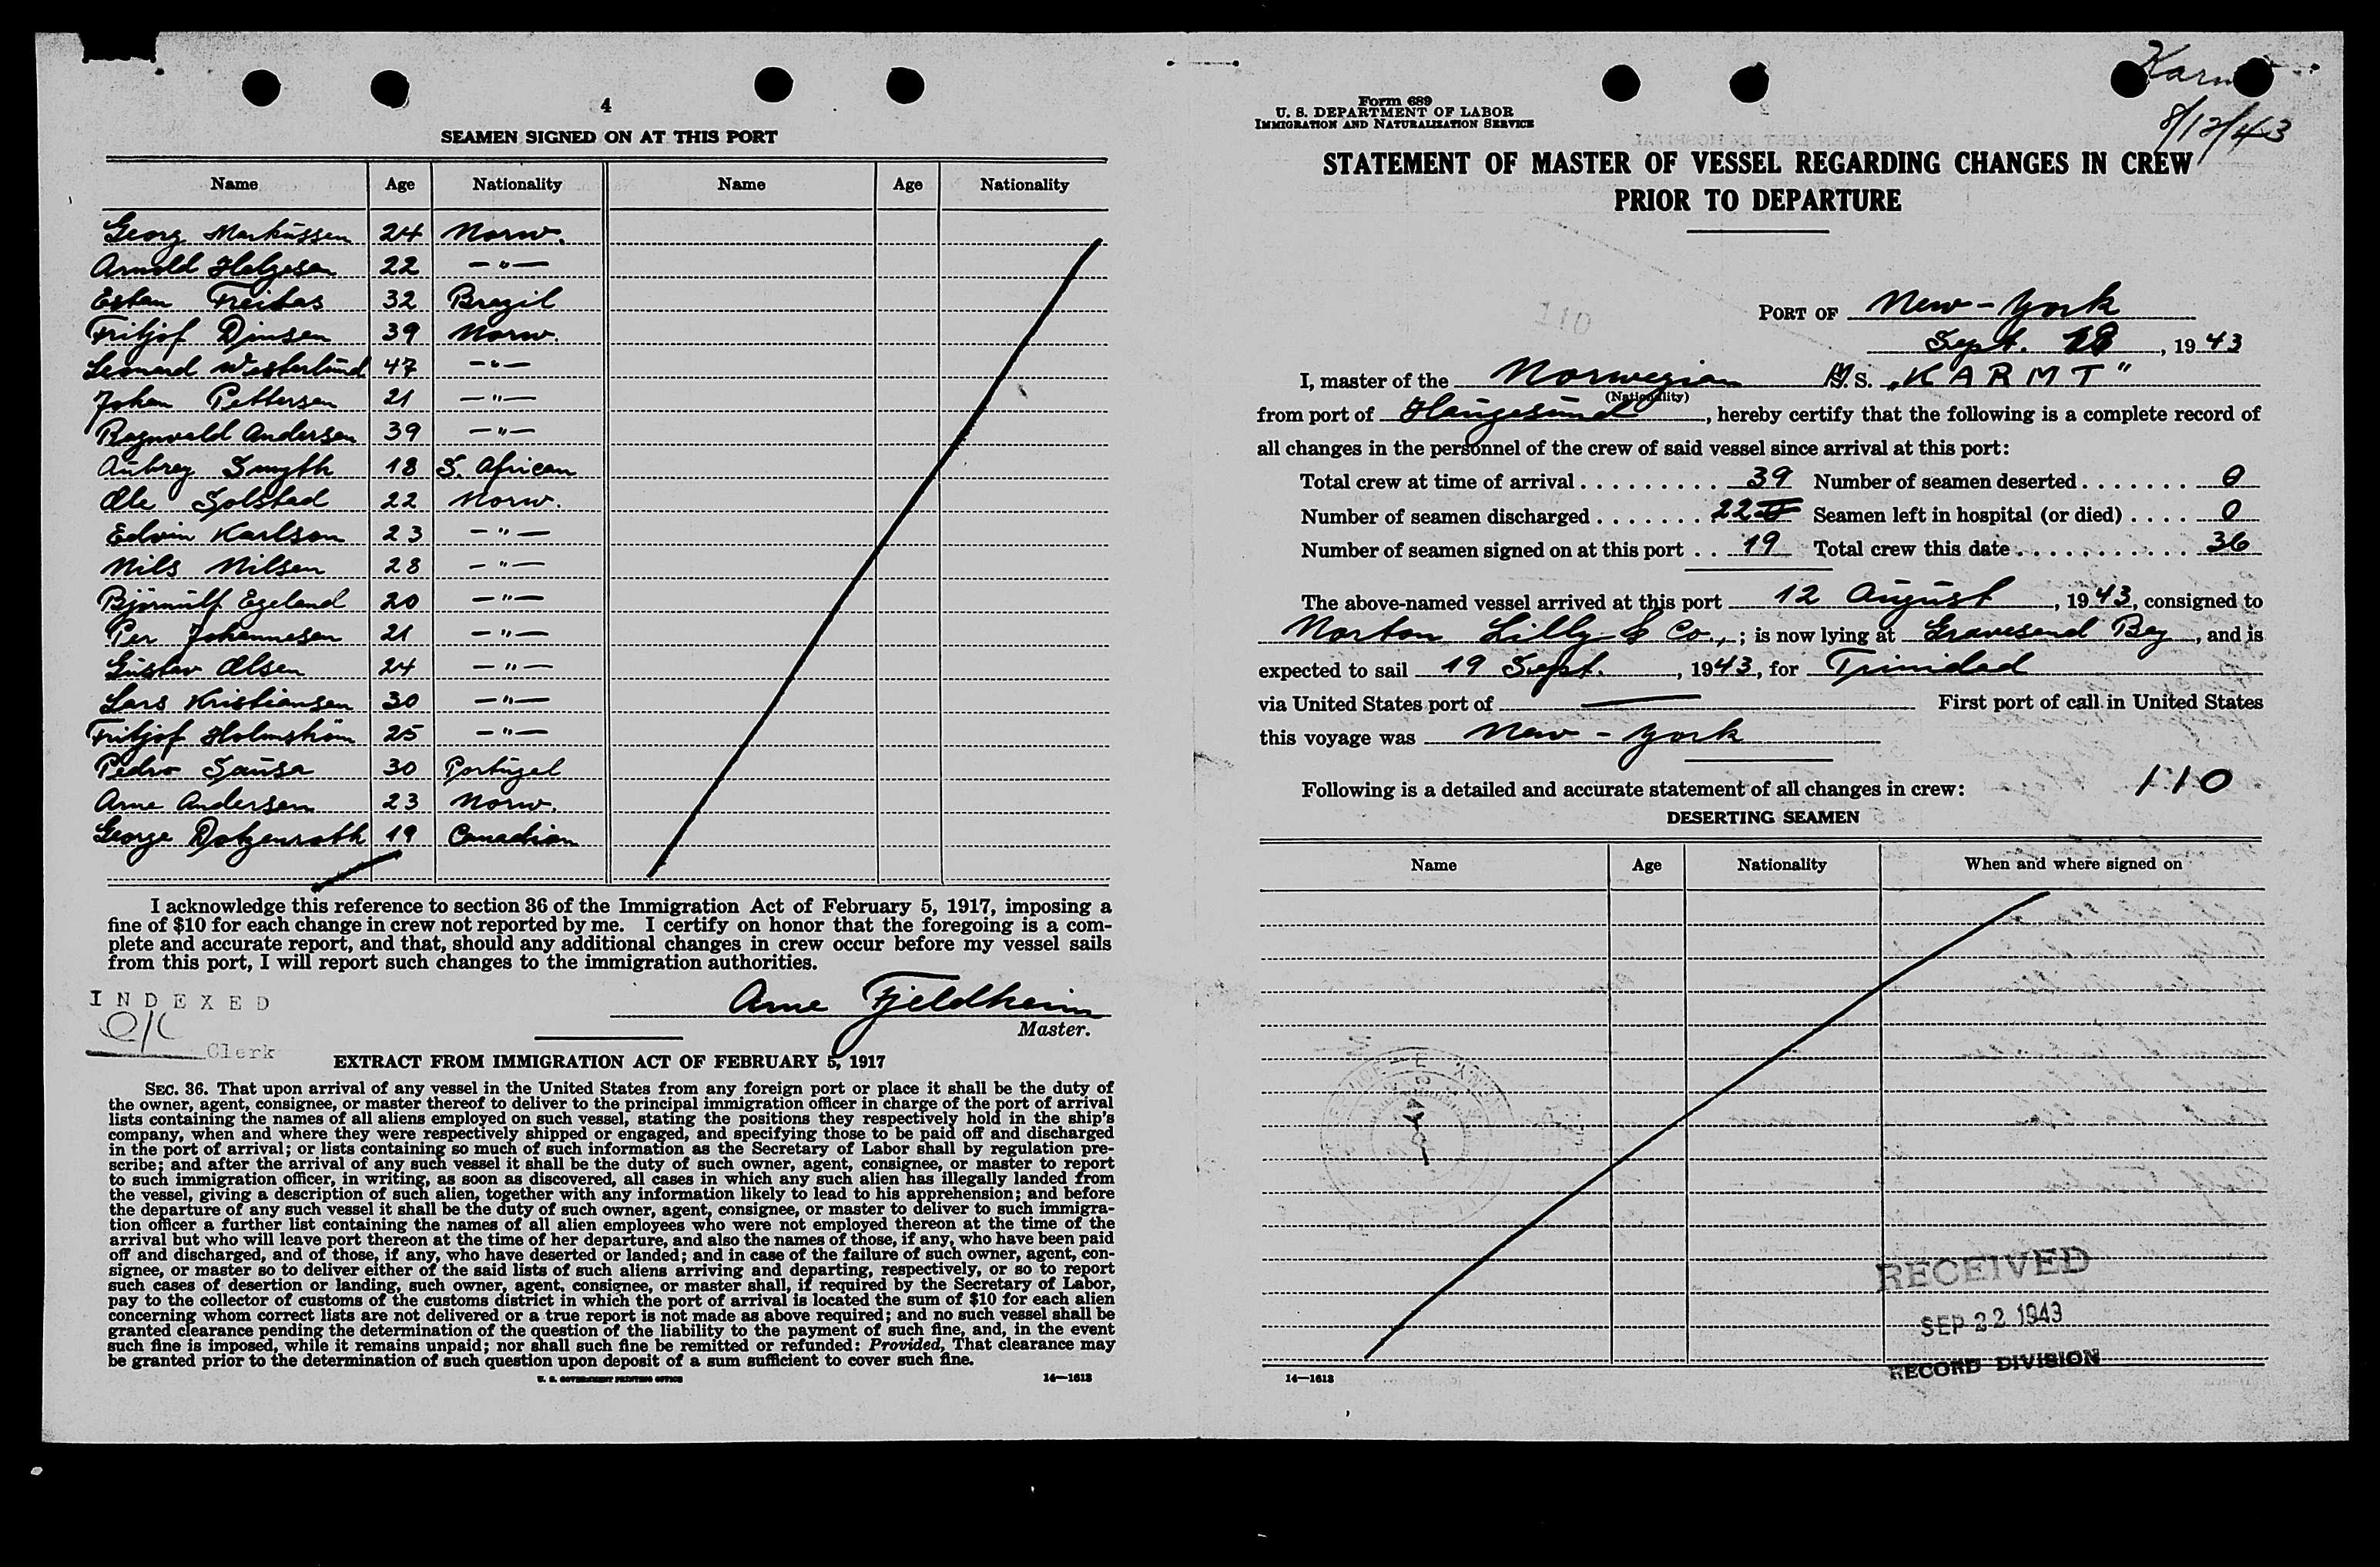 4
SEAMEN SIGNED ON AT THIS PORT
Name Age Nationality Name Age Nationality
Georg Markussen 24 Norw.
Arnold Helgesen 22 —"—
Estan Freitas 32 Brazil
Fritjof Djinsen 39 Norw.
Leonard Westerlund 47 —"—
Johan Pettersen 21 —"—
Ragnvald Andersen 39 —"—
Aubrey Smyth 18 S. African
Ole Solstad 22 Norw.
Edvin Karlson 23 —"—
Nils Nilsen 28 —"—
Björnulf Egeland 20 —"—
Per Johannesen 21 —"—
Gustav Olsen 24 —"—
Lars Kristiansen 30 —"—
Fritjof Holmström 25 —"—
Pedro Sausa 30 Portugal
Arne Andersen 23 Norw.
George Dotzenroth 19 Canadian
I acknowledge this reference to section 36 of the Immigration Act of February 5, 1917, imposing a
fine of $10 for each change in crew not reported by me. I certify on honor that the foregoing is a com-
plete and accurate report, and that, should any additional changes in crew occur before my vessel sails
from this port, I will report such changes to the immigration authorities.
INDEXED
Clerk
Arne Fjeldheim
Master.
EXTRACT FROM IMMIGRATION ACT OF FEBRUARY 5, 1917
SEC. 36. That upon arrival of any vessel in the United States from any foreign port or place it shall be the duty of
the owner, agent, consignee, or master thereof to deliver to the principal immigration officer in charge of the port of arrival
lists containing the names of all aliens employed on such vessel, stating the positions they respectively hold in the ship's
company, when and where they were respectively shipped or engaged, and specifying those to be paid off and discharged
in the port of arrival; or lists containing so much of such information as the Secretary of Labor shall by regulation pre-
scribe; and after the arrival of any such vessel it shall be the duty of such owner, agent, consignee, or master to report
to such immigration officer, in writing, as soon as discovered, all cases in which any such alien has illegally landed from
the vessel, giving a description of such alien, together with any information likely to lead to his apprehension; and before
the departure of any such vessel it shall be the duty of such owner, agent, consignee, or master to deliver to such immigra-
tion officer a further list containing the names of all alien employees who were not employed thereon at the time of the
arrival but who will leave port thereon at the time of her departure, and also the names of those, if any, who have been paid
off and discharged, and of those, if any, who have deserted or landed; and in case of the failure of such owner, agent, con-
signee, or master so to deliver either of the said lists of such aliens arriving and departing, respectively, or so to report
such cases of desertion or landing, such owner, agent, consignee, or master shall, if required by the Secretary of Labor,
pay to the collector of customs of the customs district in which the port of arrival is located the sum of $10 for each alien
concerning whom correct lists are not delivered or a true report is not made as above required; and no such vessel shall be
granted clearance pending the determination of the question of the liability to the payment of such fine, and, in the event
such fine is imposed, while it remains unpaid; nor shall such fine be remitted or refunded: Provided, That clearance may
be granted prior to the determination of such question upon deposit of a sum sufficient to cover such fine.
U. S. GOVERNMENT PRINTING OFFICE 14—1613
Karmt
8/12/43
Form 689
U. S. DEPARTMENT OF LABOR
IMMIGRATION AND NATURALIZATION SERVICE
STATEMENT OF MASTER OF VESSEL REGARDING CHANGES IN CREW
PRIOR TO DEPARTURE
110
PORT OF New-York
Sept. 18, 1943
I, master of the Norwegian M. S. „KARMT"
(Nationality)
from port of Haugesund, hereby certify that the following is a complete record of
all changes in the personnel of the crew of said vessel since arrival at this port:
Total crew at time of arrival . . . . . . . . . 39 Number of seamen deserted . . . . . . . 0
Number of seamen discharged . . . . . . . 22 Seamen left in hospital (or died) . . . . 0
Number of seamen signed on at this port . . 19 Total crew this date . . . . . . . . . . . 36
The above-named vessel arrived at this port 12 August, 1943, consigned to
Norton Lilly & Co.,; is now lying at Gravesend Bay, and is
expected to sail 19 Sept., 1943, for Trinidad
via United States port of — First port of call in United States
this voyage was New-York
Following is a detailed and accurate statement of all changes in crew: 110
DESERTING SEAMEN
Name Age Nationality When and where signed on
RECEIVED
SEP 22 1943
RECORD DIVISION
14—1613